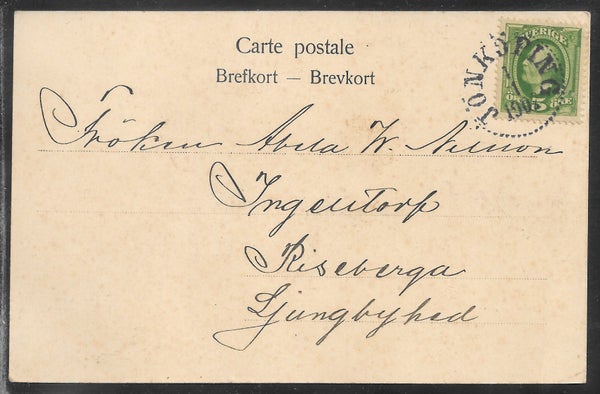 Carte postale
Brefkort — Brevkort
SVERIGE
5
ÖRE
JÖNKÖPING
Fröken
W.
Ingentorp
Riseberga
Ljungbyhed